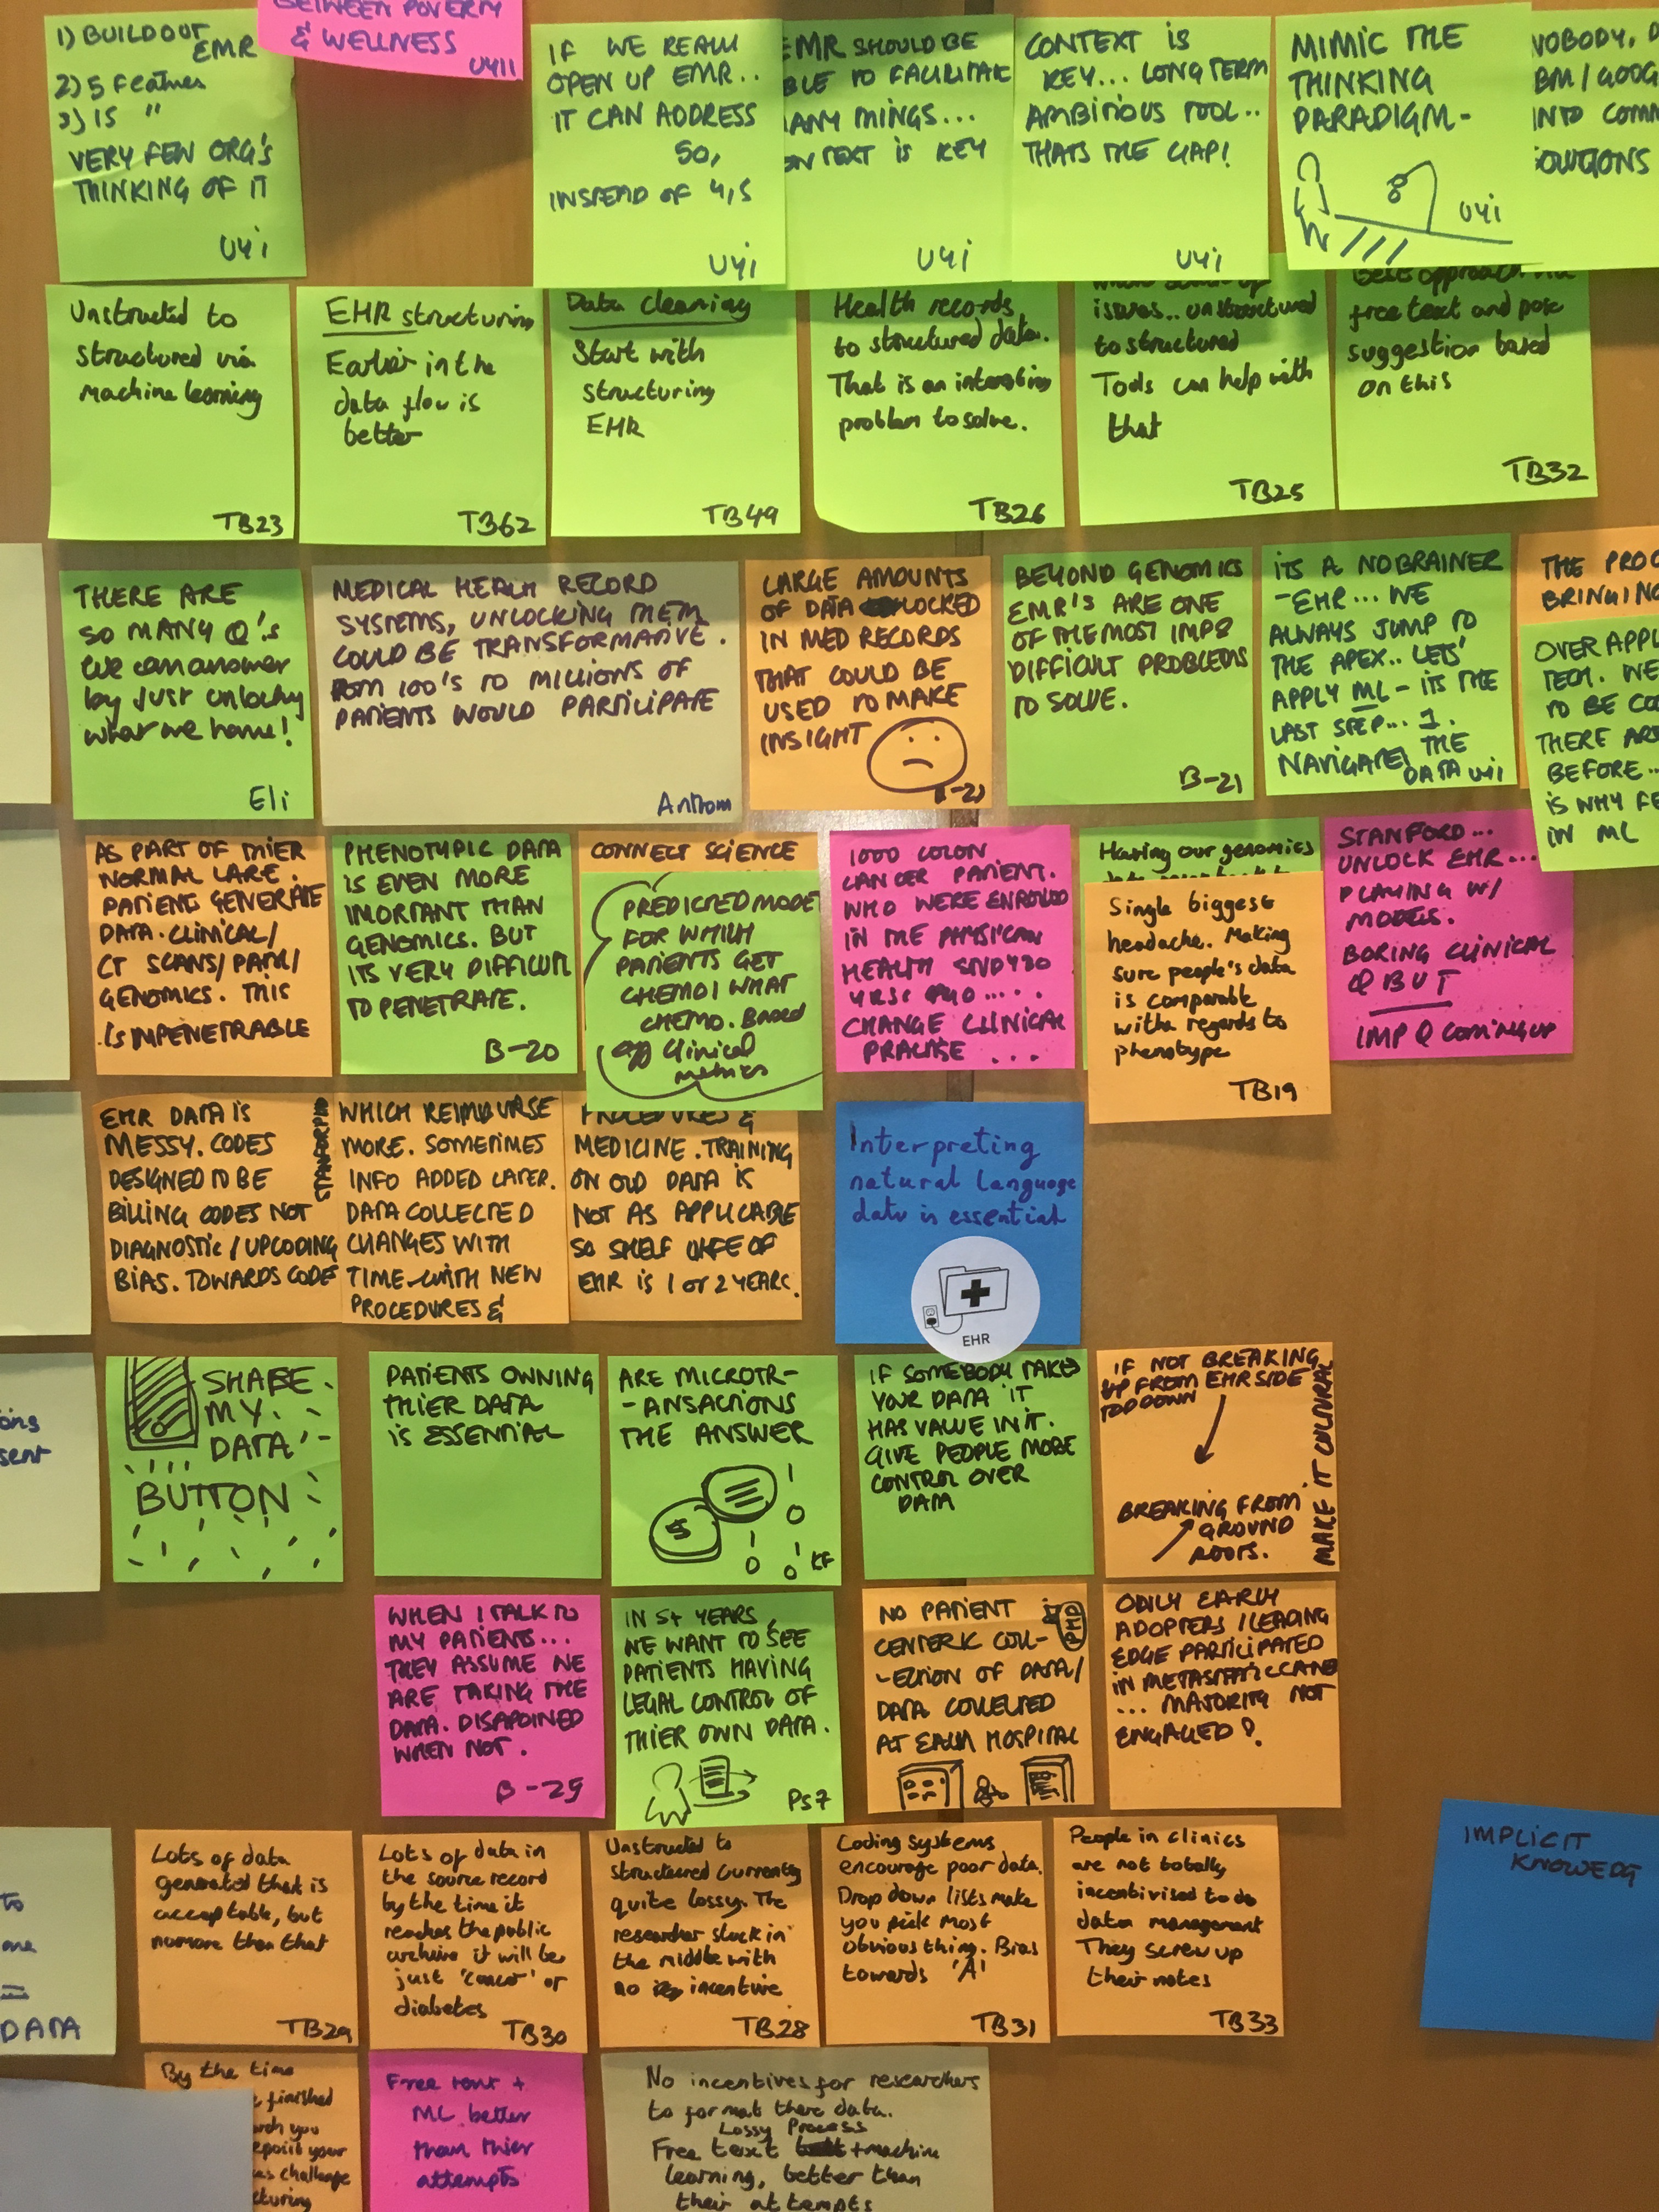 BETWEEN POVERTY
& WELLNESS
U411
1) BUILDOUT
EMR
2) 5 Features
3) 15 "
VERY FEW ORG'S
THINKING OF IT
U4i
IF WE REALLY
OPEN UP EMR..
IT CAN ADDRESS
50,
INSTEAD OF 4,5
U4i
EMR SHOULD BE
BLE TO FACILITATE
ANY THINGS...
ONTEXT IS KEY
U4i
CONTEXT IS
KEY... LONG TERM
AMBITIOUS TOOL..
THATS THE GAP!
U4i
MIMIC THE
THINKING
PARADIGM-
U4i
NOBODY,
BM/GOOG
INTO COMM
OLUTIONS
Unstructed to
structured via
machine learning
TB23
EHR structuring
Earlier in the
data flow is
better
TB62
Data cleaning
Start with
structuring
EHR
TB49
Health records
to structured data.
That is an interesting
problem to solve.
TB26
issues.. unstructured
to structured
Tools can help with
that
TB25
Best approach via
free text and pose
suggestion based
on this
TB32
THERE ARE
SO MANY Q's
We can answer
by just unlocking
what we have!
Eli
MEDICAL HEALTH RECORD
SYSTEMS, UNLOCKING THEM
COULD BE TRANSFORMATIVE.
FROM 100'S TO MILLIONS OF
PATIENTS WOULD PARTICIPATE
Anttom
LARGE AMOUNTS
OF DATA LOCKED
IN MED RECORDS
THAT COULD BE
USED TO MAKE
INSIGHT
BEYOND GENOMICS
EMR'S ARE ONE
OF THE MOST IMP &
DIFFICULT PROBLEMS
TO SOLVE.
B-21
ITS A NOBRAINER
-EHR... WE
ALWAYS JUMP TO
THE APEX.. LETS'
APPLY ML - ITS THE
LAST STEP... 1.
NAVIGATE THE
DATA U4i
THE PROC
BRINGING
OVER APPL
TECH. WE
TO BE CO
THERE ARE
BEFORE..
IS WHY FE
IN ML
AS PART OF THIER
NORMAL CARE.
PATIENT GENERATE
DATA. CLINICAL/
CT SCANS/PATH/
GENOMICS. THIS
IS IMPENETRABLE
PHENOTYPIC DATA
IS EVEN MORE
IMORTANT THAN
GENOMICS. BUT
ITS VERY DIFFICULT
TO PENETRATE.
B-20
CONNECT SCIENCE
PREDICTED MODE
FOR WHICH
PATIENTS GET
CHEMO/WHAT
CHEMO. Based
on Clinical
metrics
1000 COLON
CANCER PATIENT.
WHO WERE ENROLLED
IN THE PHYSICIAN
HEALTH STUDY 30
CHANGE CLINICAL
PRACTISE ...
Having our genomics
Single biggest
headache. Making
sure people's data
is comparable
with regards to
phenotype
TB19
STANFORD...
UNLOCK EHR...
PLAYING W/
MODELS.
BORING CLINICAL
Q BUT
IMP Q COMING UP
EHR DATA IS
MESSY. CODES
DESIGNED TO BE
BILLING CODES NOT
DIAGNOSTIC/UPCODING
BIAS. TOWARDS CODE
STANFORD
WHICH REIMBURSE
MORE. SOMETIMES
INFO ADDED LATER.
DATA COLLECTED
CHANGES WITH
TIME-WITH NEW
PROCEDURES &
PROCEDURES &
MEDICINE. TRAINING
ON OLD DATA IS
NOT AS APPLICABLE
SO SHELF LIFE OF
EHR IS 1 or 2 YEARS.
Interpreting
natural language
data is essential
EHR
SHARE
MY
DATA
BUTTON
PATIENTS OWNING
THIER DATA
IS ESSENTIAL
ARE MICROTR-
-ANSACTIONS
THE ANSWER
KF
IF SOMEBODY TAKES
YOUR DATA IT
HAS VALUE IN IT.
GIVE PEOPLE MORE
CONTROL OVER
DATA
IF NOT BREAKING
UP FROM EHR SIDE
TOP DOWN
BREAKING FROM
GROUND
ROOTS.
MAKE IT CULTURAL
WHEN I TALK TO
MY PATIENTS...
THEY ASSUME WE
ARE TAKING THE
DATA. DISAPOINED
WHEN NOT.
B-29
IN 5+ YEARS,
WE WANT TO SEE
PATIENTS HAVING
LEGAL CONTROL OF
THIER OWN DATA.
PS7
NO PATIENT
CENTERIC COLL-
-ECTION OF DATA/
DATA COLLECTED
AT EACH HOSPITAL
PMD
ONLY EARLY
ADOPTERS/LEADING
EDGE PARTICIPATED
IN METASTATIC CANC
... MAJORITY NOT
ENGAGED?
ons
sent
Lots of data
generated that is
acceptable, but
no more than that
TB29
Lots of data in
the source record
by the time it
reaches the public
archive it will be
just 'cancer' or
diabetes
TB30
Unstructed to
structured currently
quite lossy. The
researcher stuck in
the middle with
no incentive
TB28
Coding systems
encourage poor data.
Drop down lists make
you pick most
obvious thing. Bias
towards 'A'
TB31
People in clinics
are not totally
incentivised to do
data management
They screw up
their notes
TB33
IMPLICIT
KNOWEDG
to
DATA
By the time
finished
you
your
challenge
cturing
Free text +
ML better
than thier
attempts
No incentives for researchers
to format there data.
Lossy Process
Free text + machine
learning, better than
their attempts